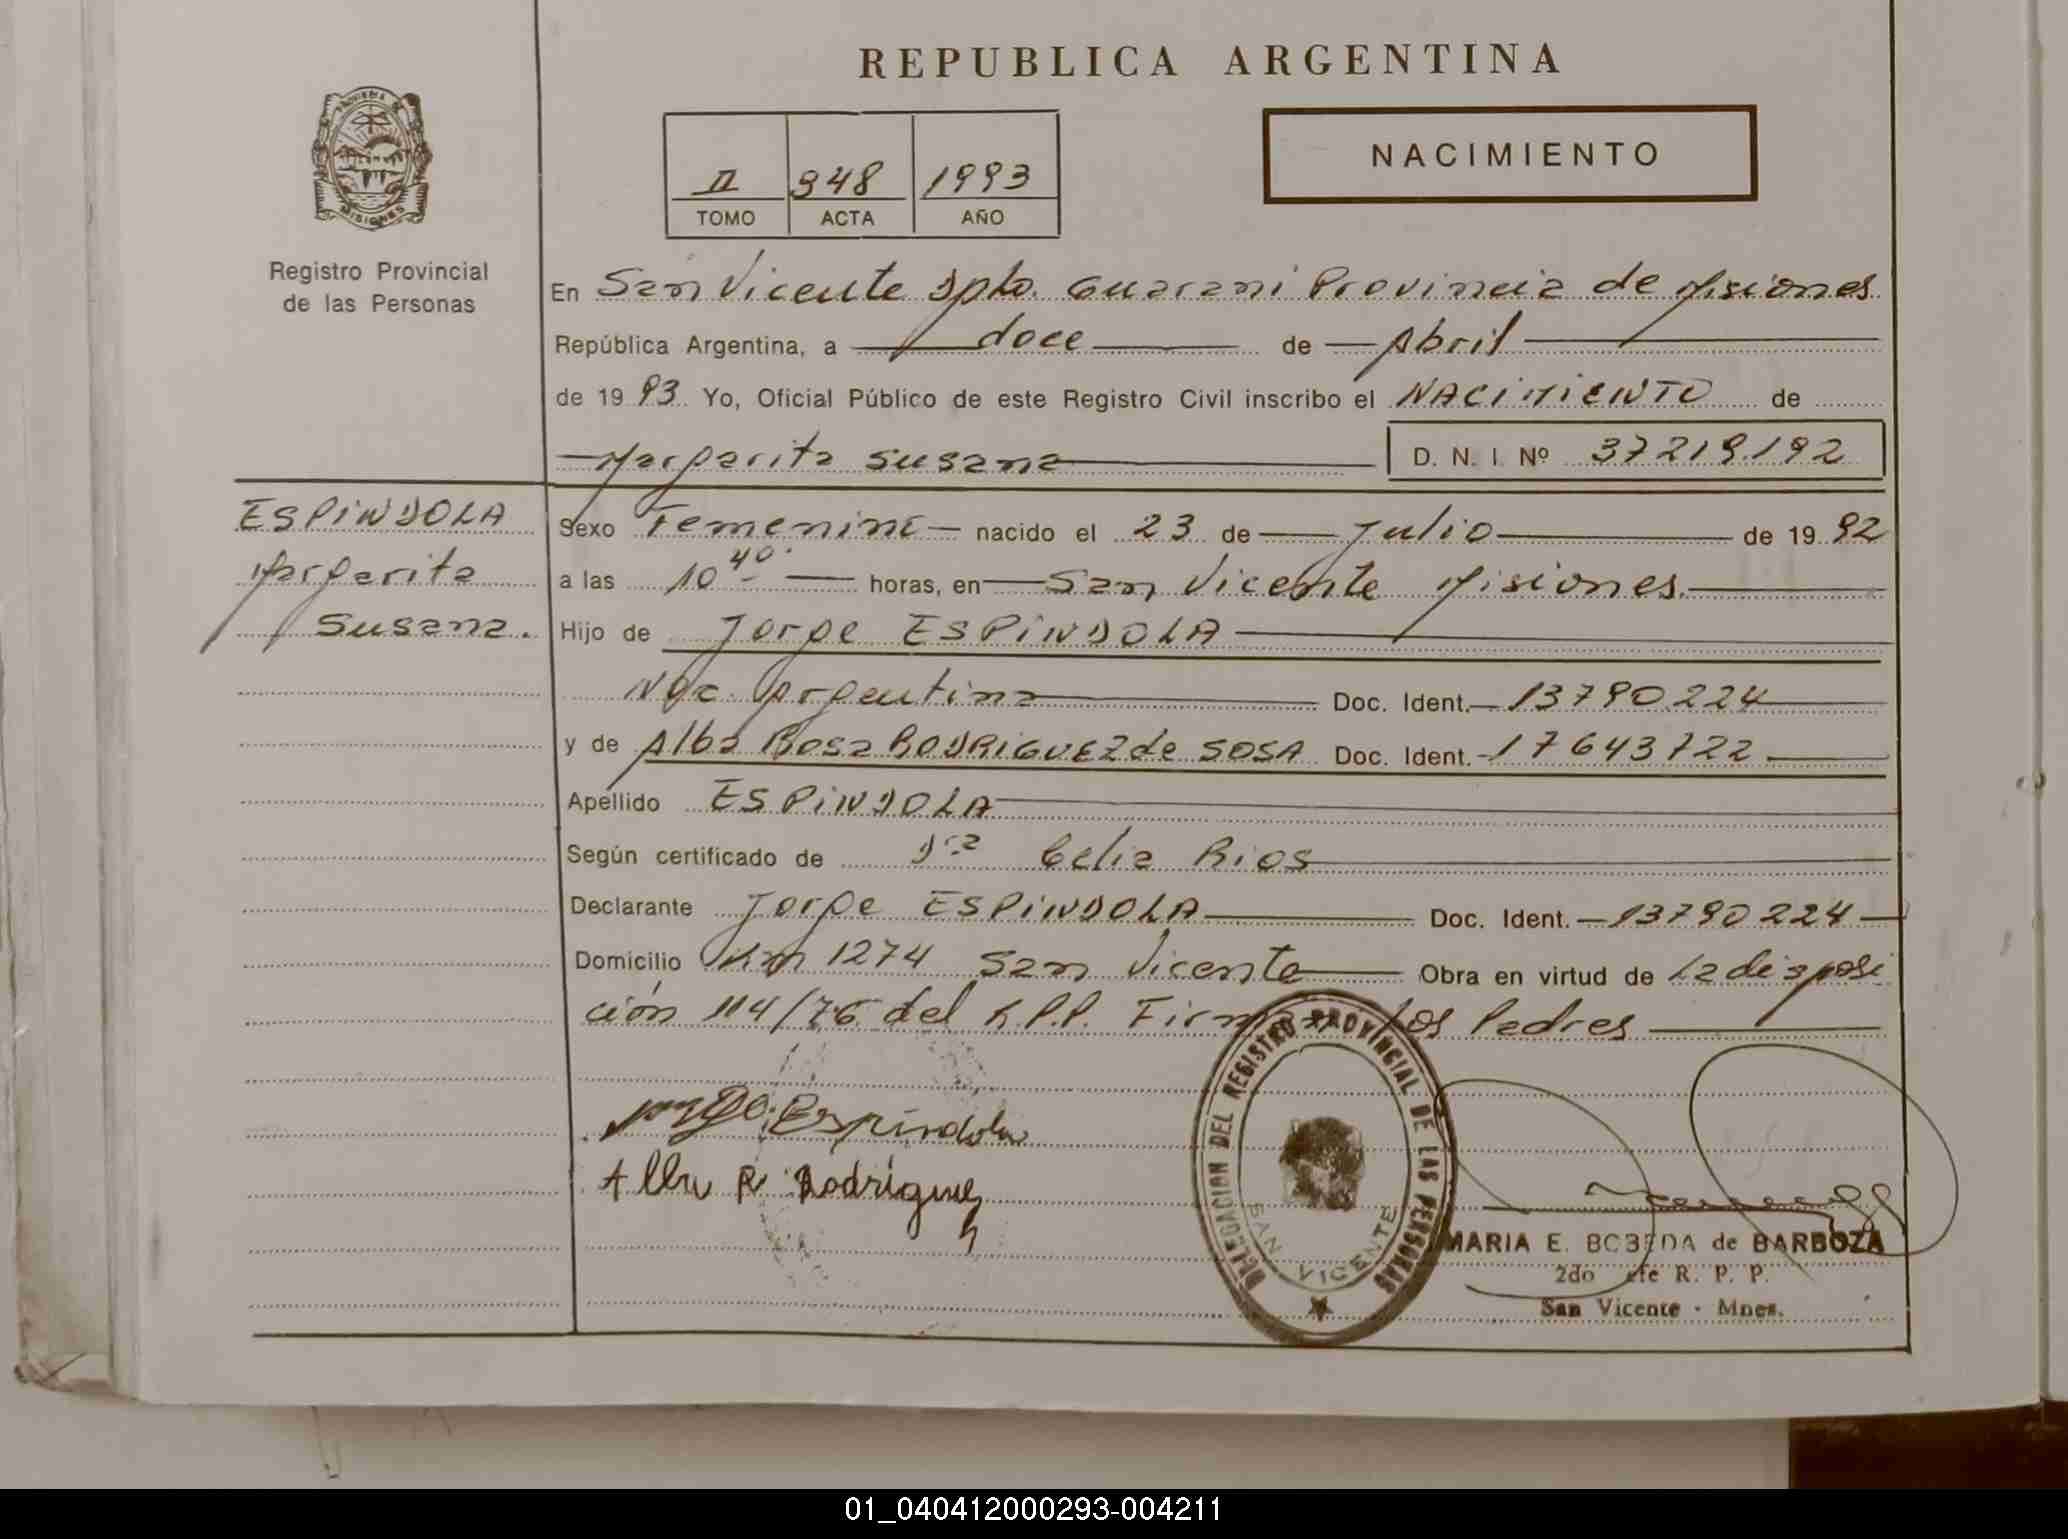 REPUBLICA ARGENTINA
PROVINCIA DE
MISIONES
Registro Provincial
de las Personas
II 948 1993
TOMO ACTA AÑO
NACIMIENTO
En San Vicente Dpto. Guarani Provincia de Misiones
República Argentina, a doce de Abril
de 19 93 Yo, Oficial Público de este Registro Civil inscribo el NACIMIENTO de
Margarita Susana D. N. I. Nº 37219192
ESPINDOLA
Margarita
Susana.
Sexo Femenino nacido el 23 de Julio de 19 92
a las 10 40 horas, en San Vicente Misiones.
Hijo de Jorge ESPINDOLA
Nac. Argentina Doc. Ident. 13790224
y de Alba Rosa RODRIGUEZ de SOSA Doc. Ident. 17643722
Apellido ESPINDOLA
Según certificado de Dra Celia Rios
Declarante Jorge ESPINDOLA Doc. Ident. 13790224
Domicilio Km 1274 San Vicente Obra en virtud de La disposi
ción 114/76 del R.P.P. Firman los Padres
Jorge Espíndola
Alba R Rodríguez
DELEGACION DEL REGISTRO PROVINCIAL DE LAS PERSONAS
SAN VICENTE
MARIA E. BOBEDA de BARBOZA
2do Jefe R. P. P.
San Vicente - Mnes.
01_040412000293-004211